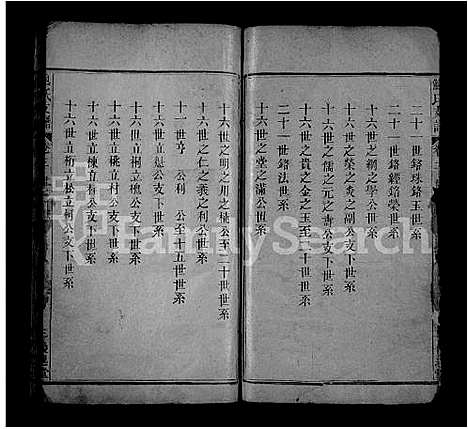 二十一世鍇珠鍇玉世系
二十一世鍇經鍇榮世系
十六世之綱之學公世系
十六世之榮之秀之副公支下世系
十六世之儒之元之青公支下世系
十六世之貴之金之玉至三十六世世系
二十一世鍇法世系
十六世之堂之滿公世系
十六世之明之用之積公至三十世世系
十六世之仁之義之利公世系
十一世 公利 公至十五世世系
十六世立桐立槐公支下世系
十六世立桃立村公支下世系
十六世立棟立 公支下世系
十六世立桁立松立柯公支下世系
FamilySearch